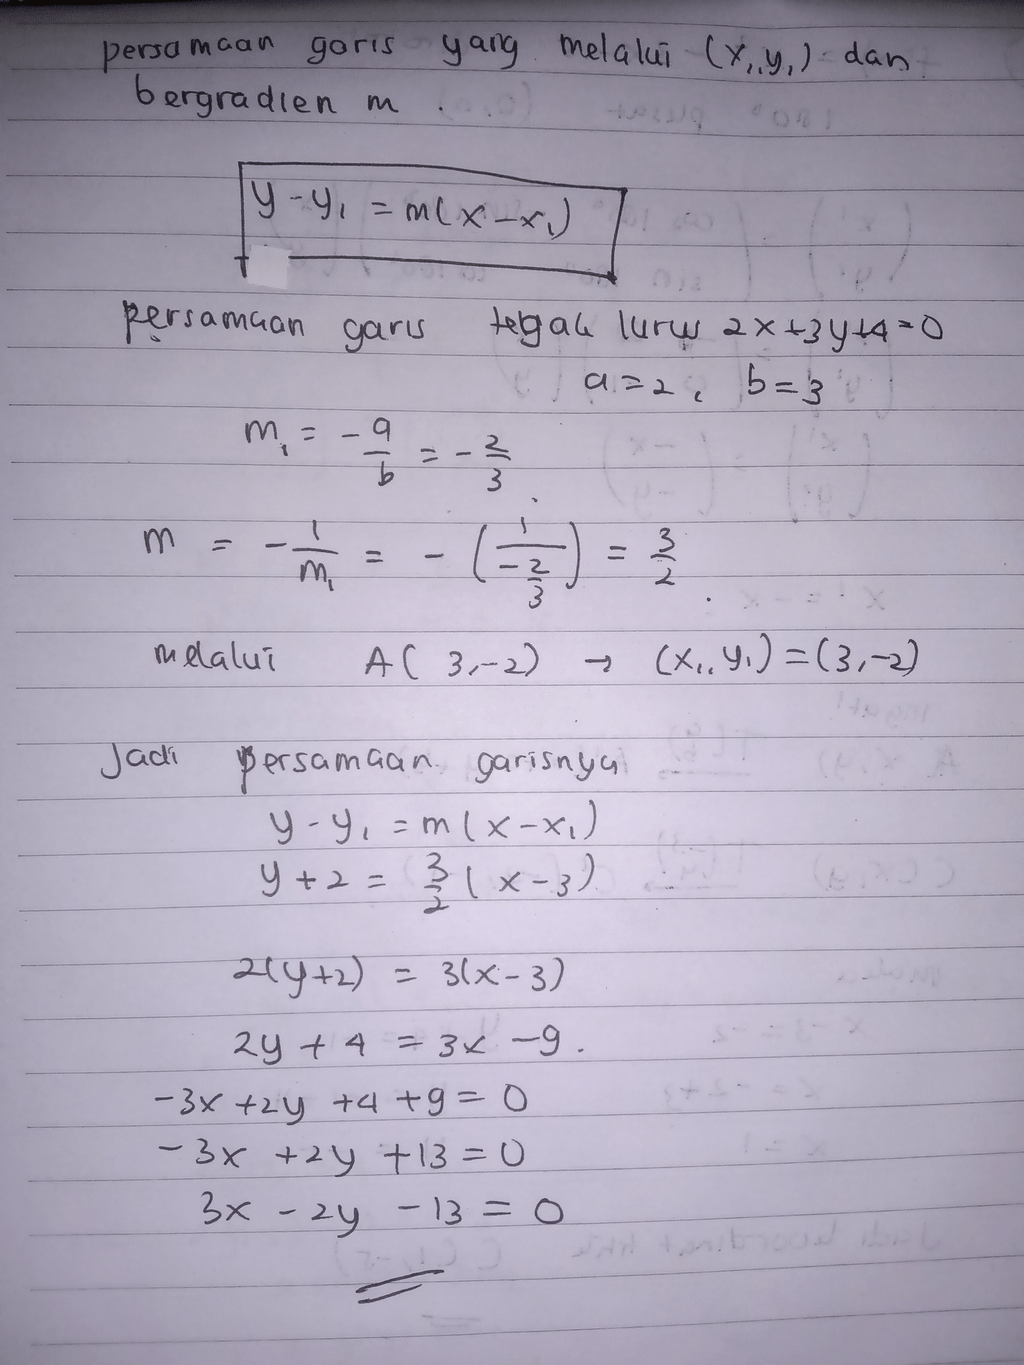 persamaan garis yang melalui (x₁, y₁) dan
bergradien m.
y - y₁ = m(x - x₁)
persamaan garis tegak lurus 2x+3y+4=0
a = 2, b = 3
m₁ = -a/b = -2/3.
m = -1/m₁ = -(1/(-2/3)) = 3/2.
melalui A(3,-2) → (x₁, y₁) = (3,-2)
Jadi persamaan garisnya
y - y₁ = m(x - x₁)
y + 2 = 3/2 (x - 3)
2(y+2) = 3(x - 3)
2y + 4 = 3x - 9.
-3x + 2y + 4 + 9 = 0
-3x + 2y + 13 = 0
3x - 2y - 13 = 0